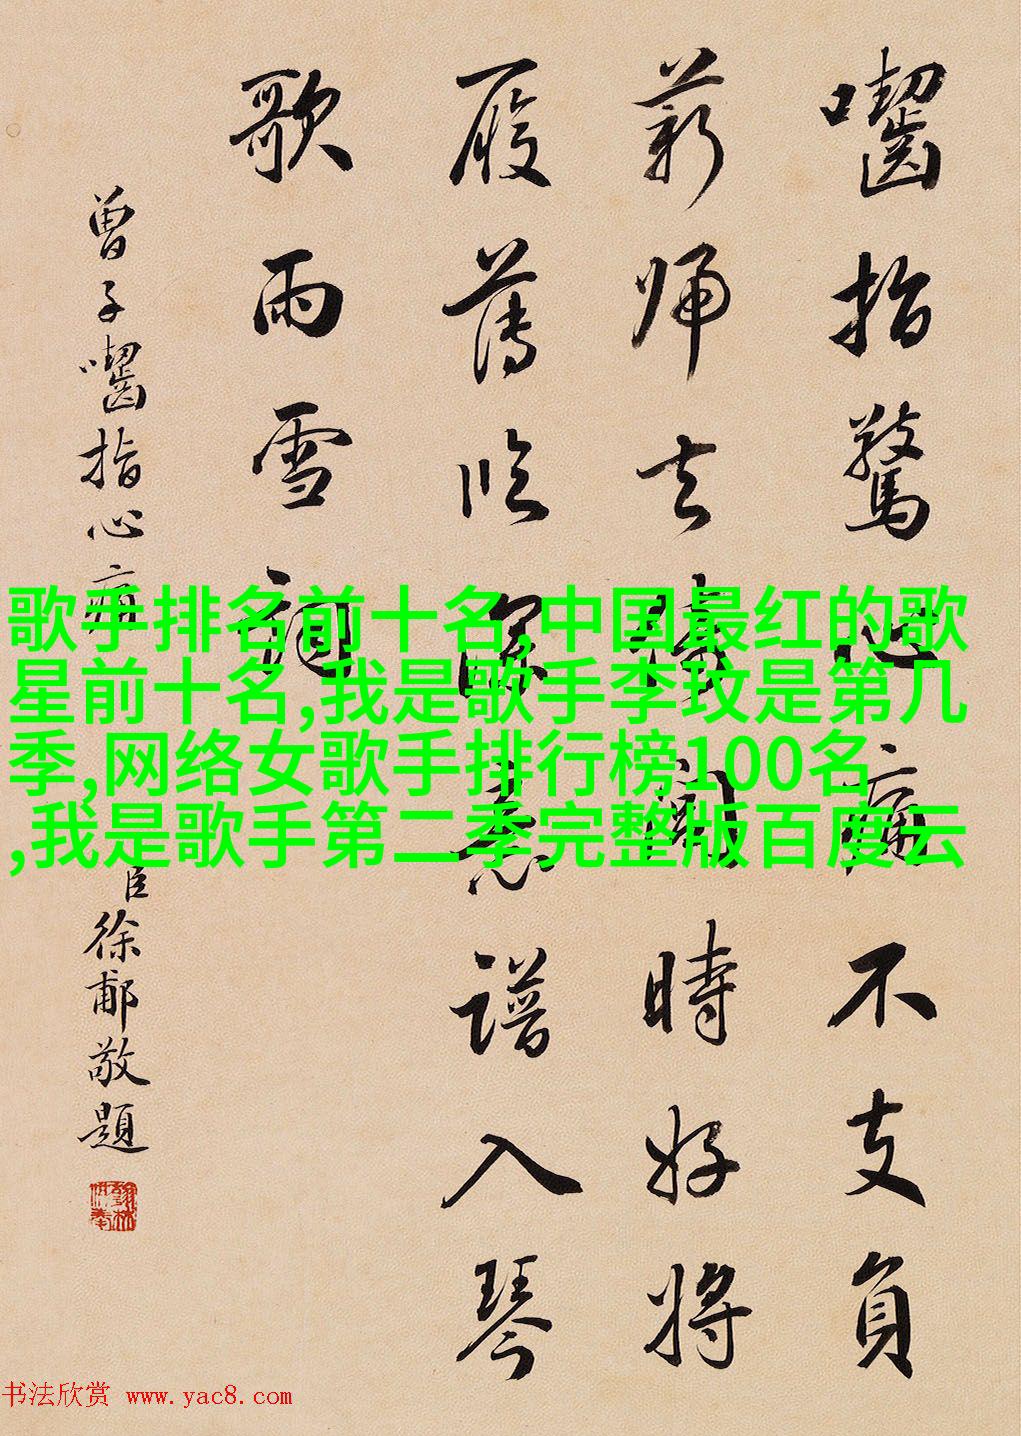 囓指驚心痛不支負
薪歸去倚閭時好將
履薄臨深意譜入琴
歌雨雪詞
曾子囓指心痛
臣徐郙敬題
歌手排名前十名,中国最红的歌
星前十名,我是歌手李玟是第几
季,网络女歌手排行榜100名
,我是歌手第二季完整版百度云
书法欣赏 www.yac8.com